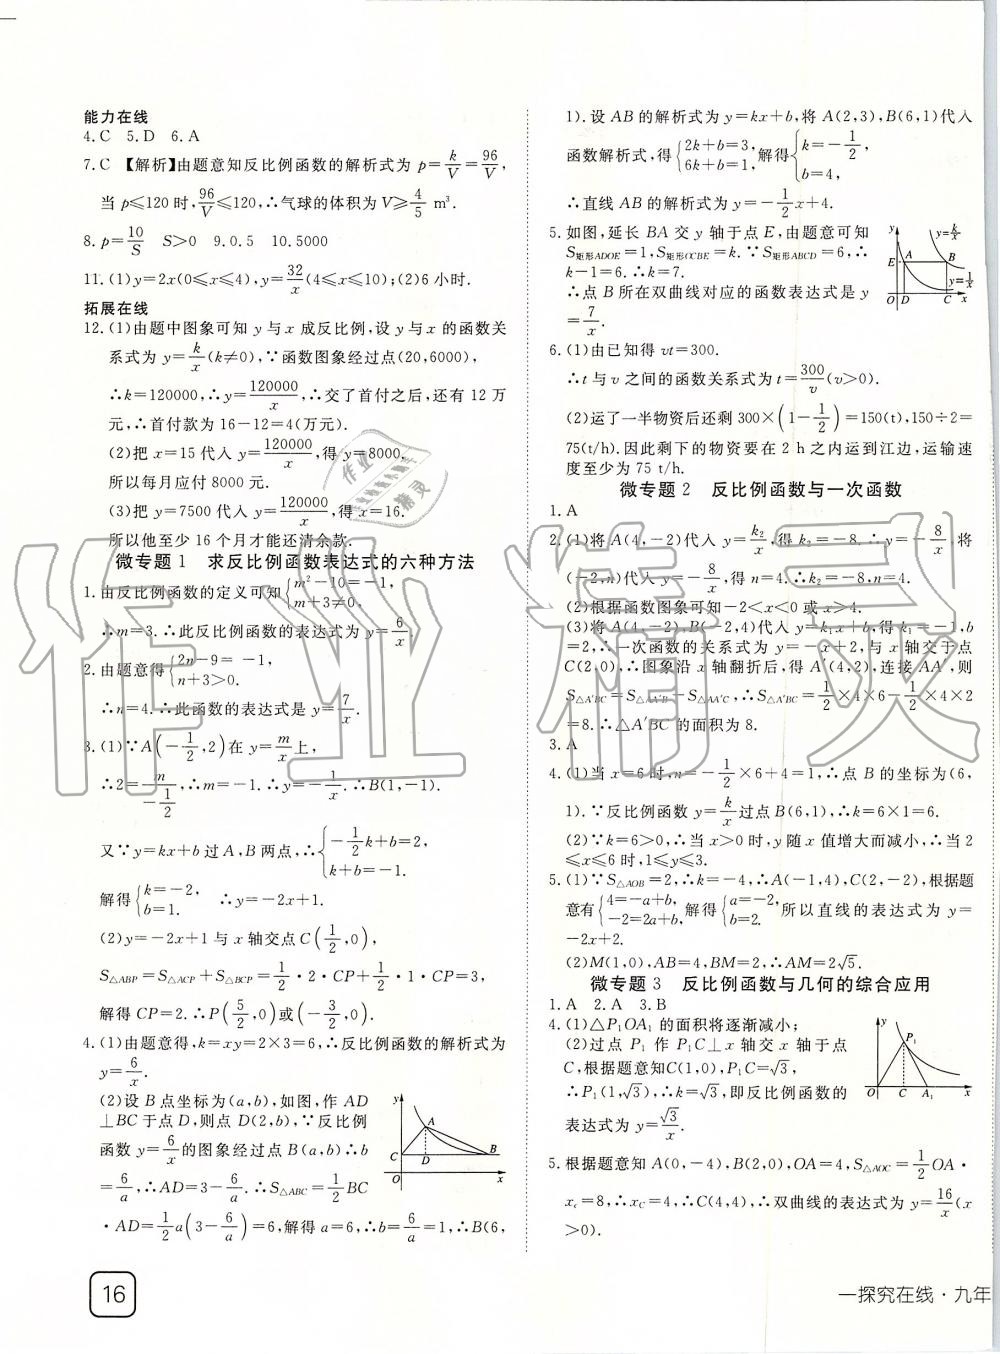 能力在线
4.C 5.D 6.A
7.C 【解析】由题意知反比例函数的解析式为 p=k/V=96/V,
当 p≤120 时,96/V≤120,∴气球的体积为V≥4/5 m³.
8.p=10/S S>0 9.0.5 10.5000
11.(1)y=2x(0≤x≤4),y=32/x(4≤x≤10);(2)6 小时.
拓展在线
12.(1)由题中图象可知 y 与 x 成反比例,设 y 与 x 的函数关
系式为 y=k/x(k≠0),∵函数图象经过点(20,6000),
∴k=120000,∴y=120000/x,∴交了首付之后,还有 12 万
元,∴首付款为 16-12=4(万元).
(2)把 x=15 代入 y=120000/x,得 y=8000.
所以每月应付 8000 元.
(3)把 y=7500 代入 y=120000/x,得 x=16.
所以他至少 16 个月才能还清余款.
微专题 1 求反比例函数表达式的六种方法
1.由反比例函数的定义可知{m²-10=-1,
m+3≠0,
∴m=3.∴此反比例函数的表达式为 y=6/x.
2.由题意得{2n-9=-1,
n+3>0.
∴n=4.∴此函数的表达式是 y=7/x.
3.(1)∵A(-1/2,2)在 y=m/x上,
∴2=m/(-1/2),∴m=-1.∴y=-1/x.∴B(1,-1).
又∵y=kx+b 过 A,B 两点,∴{-1/2k+b=2,
k+b=-1.
解得{k=-2,
b=1. ∴y=-2x+1.
(2)y=-2x+1 与 x 轴交点 C(1/2,0),
S△ABP=S△ACP+S△BCP=1/2·2·CP+1/2·1·CP=3,
解得 CP=2.∴P(5/2,0)或(-3/2,0).
4.(1)由题意得,k=xy=2×3=6,∴反比例函数的解析式为
y=6/x.
(2)设 B 点坐标为(a,b),如图,作 AD
⊥BC于点 D,则点 D(2,b),∵反比例
函数 y=6/x 的图象经过点 B(a,b)∴b
=6/a,∴AD=3-6/a.∴S△ABC=1/2BC
·AD=1/2a(3-6/a)=6,解得 a=6,∴b=6/a=1,∴B(6,
y
A
C
D
B
O
x
16
1).设 AB 的解析式为 y=kx+b,将 A(2,3),B(6,1)代入
函数解析式,得{2k+b=3,
6k+b=1,解得{k=-1/2,
b=4,
∴直线 AB 的解析式为 y=-1/2x+4.
5.如图,延长 BA 交 y 轴于点 E,由题意可知
S矩形ADOE=1,S矩形OCBE=k.∵S矩形ABCD=6,∴
k-1=6.∴k=7.
∴点 B 所在双曲线对应的函数表达式是 y
=7/x.
y
y=k/x
E
A
B
y=1/x
O
D
C
x
6.(1)由已知得 vt=300.
∴t 与 v 之间的函数关系式为 t=300/v(v>0).
(2)运了一半物资后还剩 300×(1-1/2)=150(t),150÷2=
75(t/h).因此剩下的物资要在 2 h 之内运到江边,运输速
度至少为 75 t/h.
微专题 2 反比例函数与一次函数
1.A
2.(1)将 A(4,-2)代入 y=k₂/x,得 k₂=-8.∴y=-8/x.将
(-2,n)代入 y=-8/x,得 n=4.∴k₂=-8,n=4.
(2)根据函数图象可知-2<x<0 或 x>4.
(3)将 A(4,-2),B(-2,4)代入 y=k₁x+b,得 k₁=-1,b
=2,∴一次函数的关系式为 y=-x+2,与 x 轴交于点
C(2,0),∴图象沿 x 轴翻折后,得 A′(4,2),连接 AA′,则
S△A′BC=S△AA′B-S△AA′C,∴S△A′BC=1/2×4×6-1/2×4×2
=8.∴△A′BC 的面积为 8.
3.A
4.(1)当 x=6 时,n=-1/2×6+4=1,∴点 B 的坐标为(6,
1).∵反比例函数 y=k/x过点 B(6,1),∴k=6×1=6.
(2)∵k=6>0,∴当 x>0 时,y 随 x 值增大而减小,∴当 2
≤x≤6 时,1≤y≤3.
5.(1)∵S△AOB=2,∴k=-4,∴A(-1,4),C(2,-2),根据题
意有{4=-a+b,
-2=2a+b,解得{a=-2,
b=2. 所以直线的表达式为 y=
-2x+2.
(2)M(1,0),AB=4,BM=2,∴AM=2√5.
微专题 3 反比例函数与几何的综合应用
1.A 2.A 3.B
4.(1)△P₁OA₁ 的面积将逐渐减小;
(2)过点 P₁ 作 P₁C⊥x 轴交 x 轴于点
C,根据题意知C(1,0),P₁C=√3,
∴P₁(1,√3),∴k=√3,即反比例函数的
表达式为 y=√3/x.
y
P₁
O
C
A₁
x
5.根据题意知 A(0,-4),B(2,0),OA=4,S△AOC=1/2OA·
xc=8,∴xc=4,∴C(4,4),∴双曲线的表达式为 y=16/x(x
>0).
一探究在线·九年
作业精灵